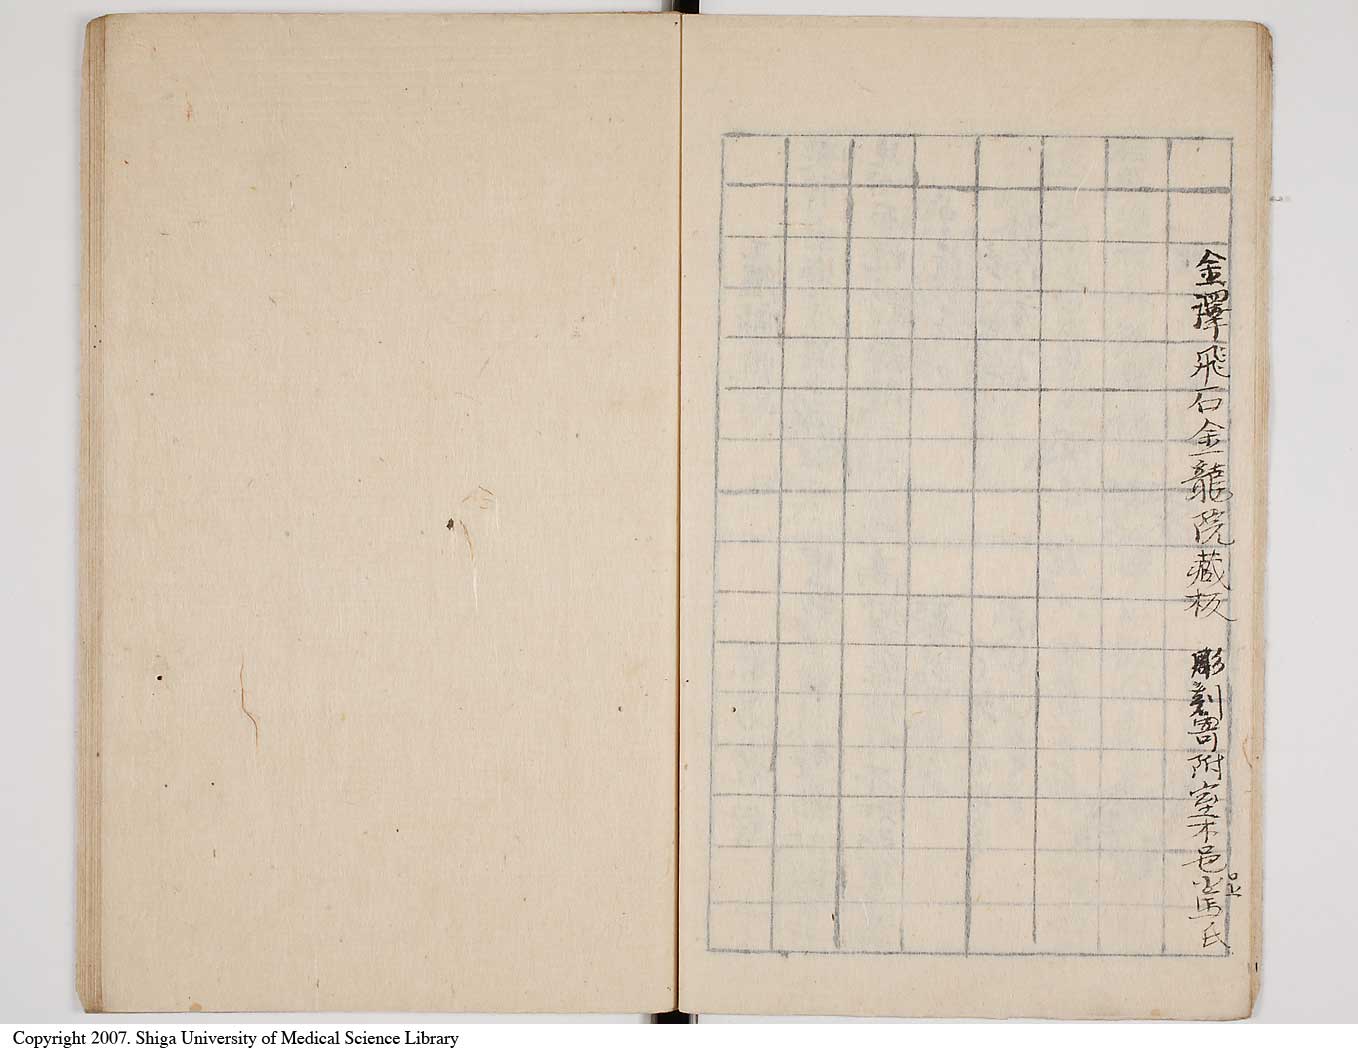 金澤飛石金龍院藏板 彫刻寄附室木邑氏
Copyright 2007. Shiga University of Medical Science Library